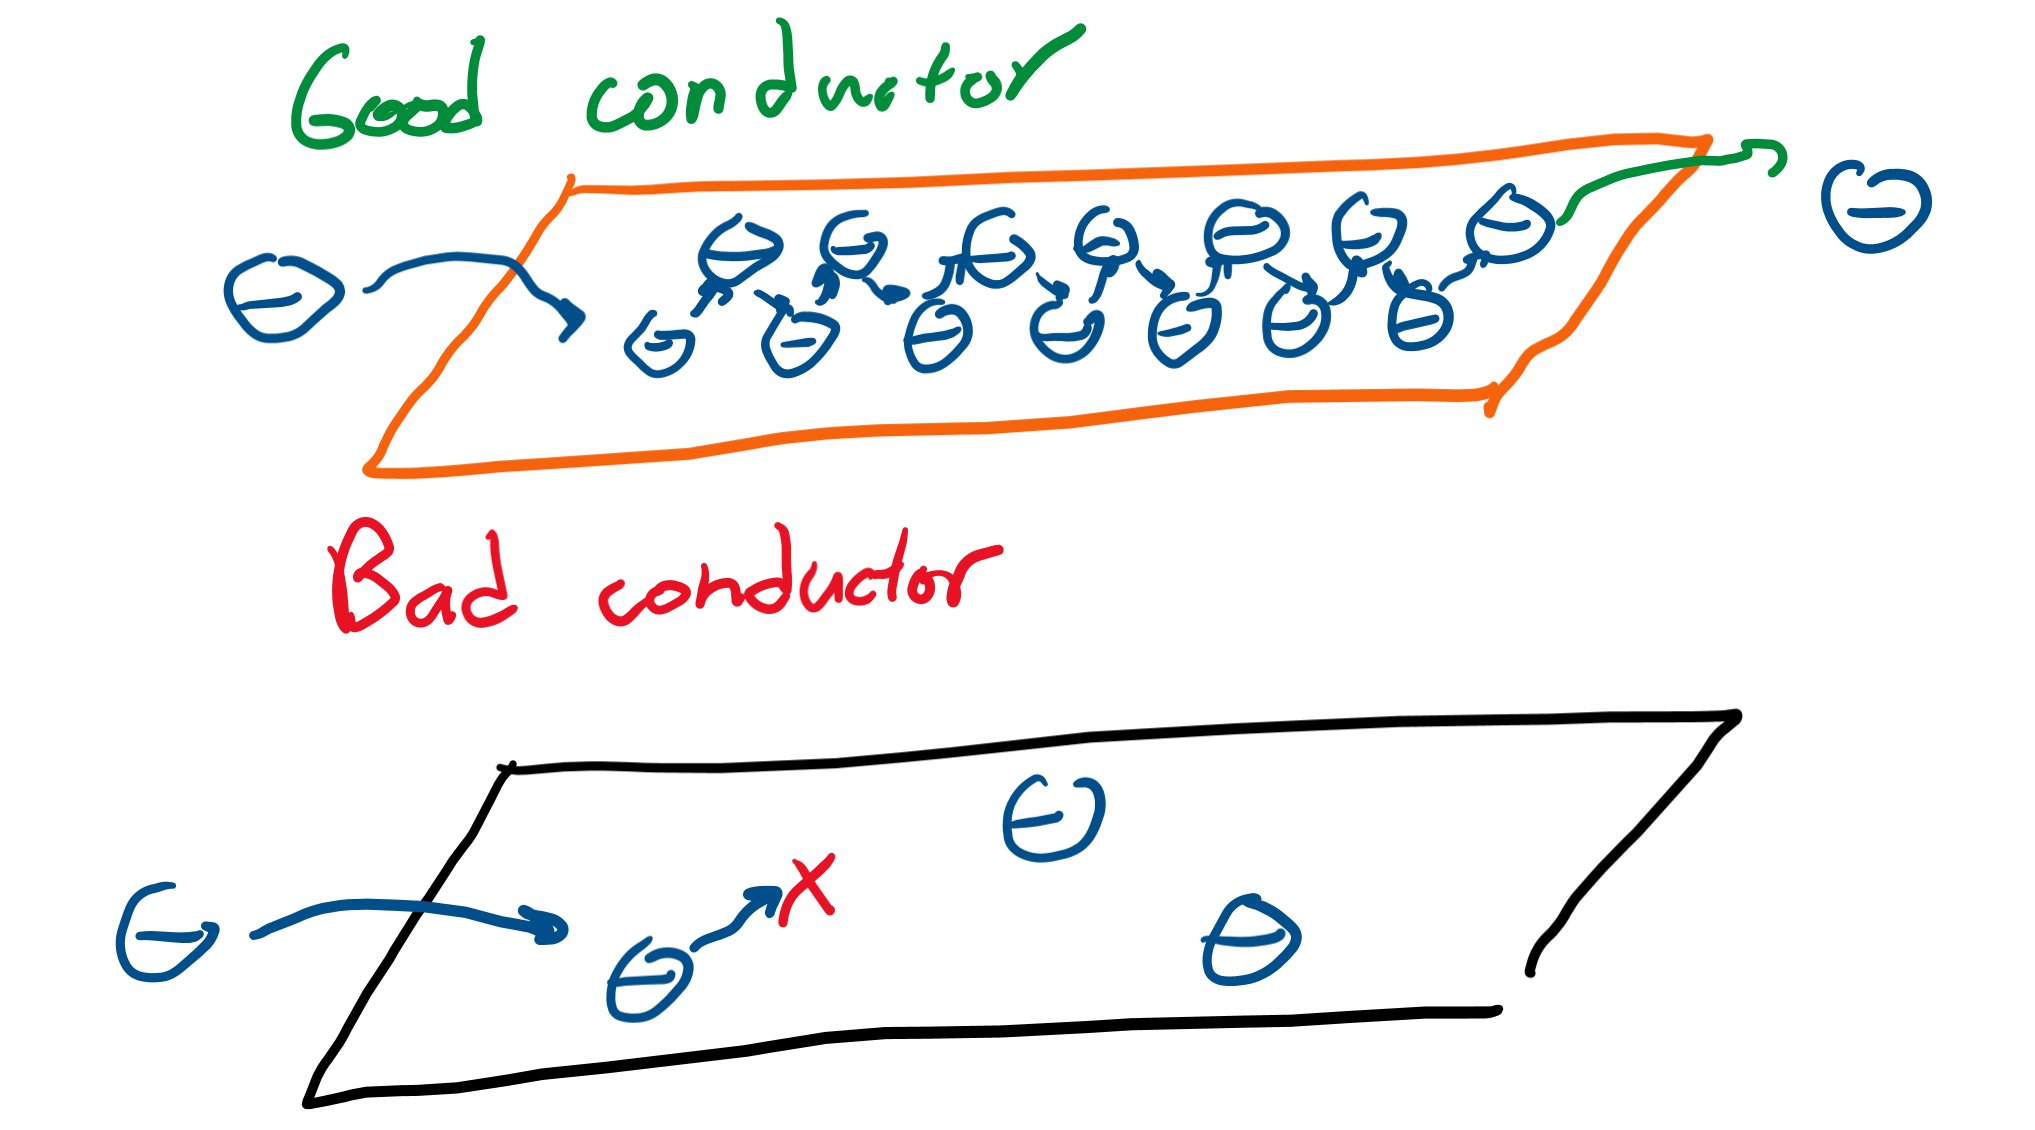 Good conductor
Bad conductor
X